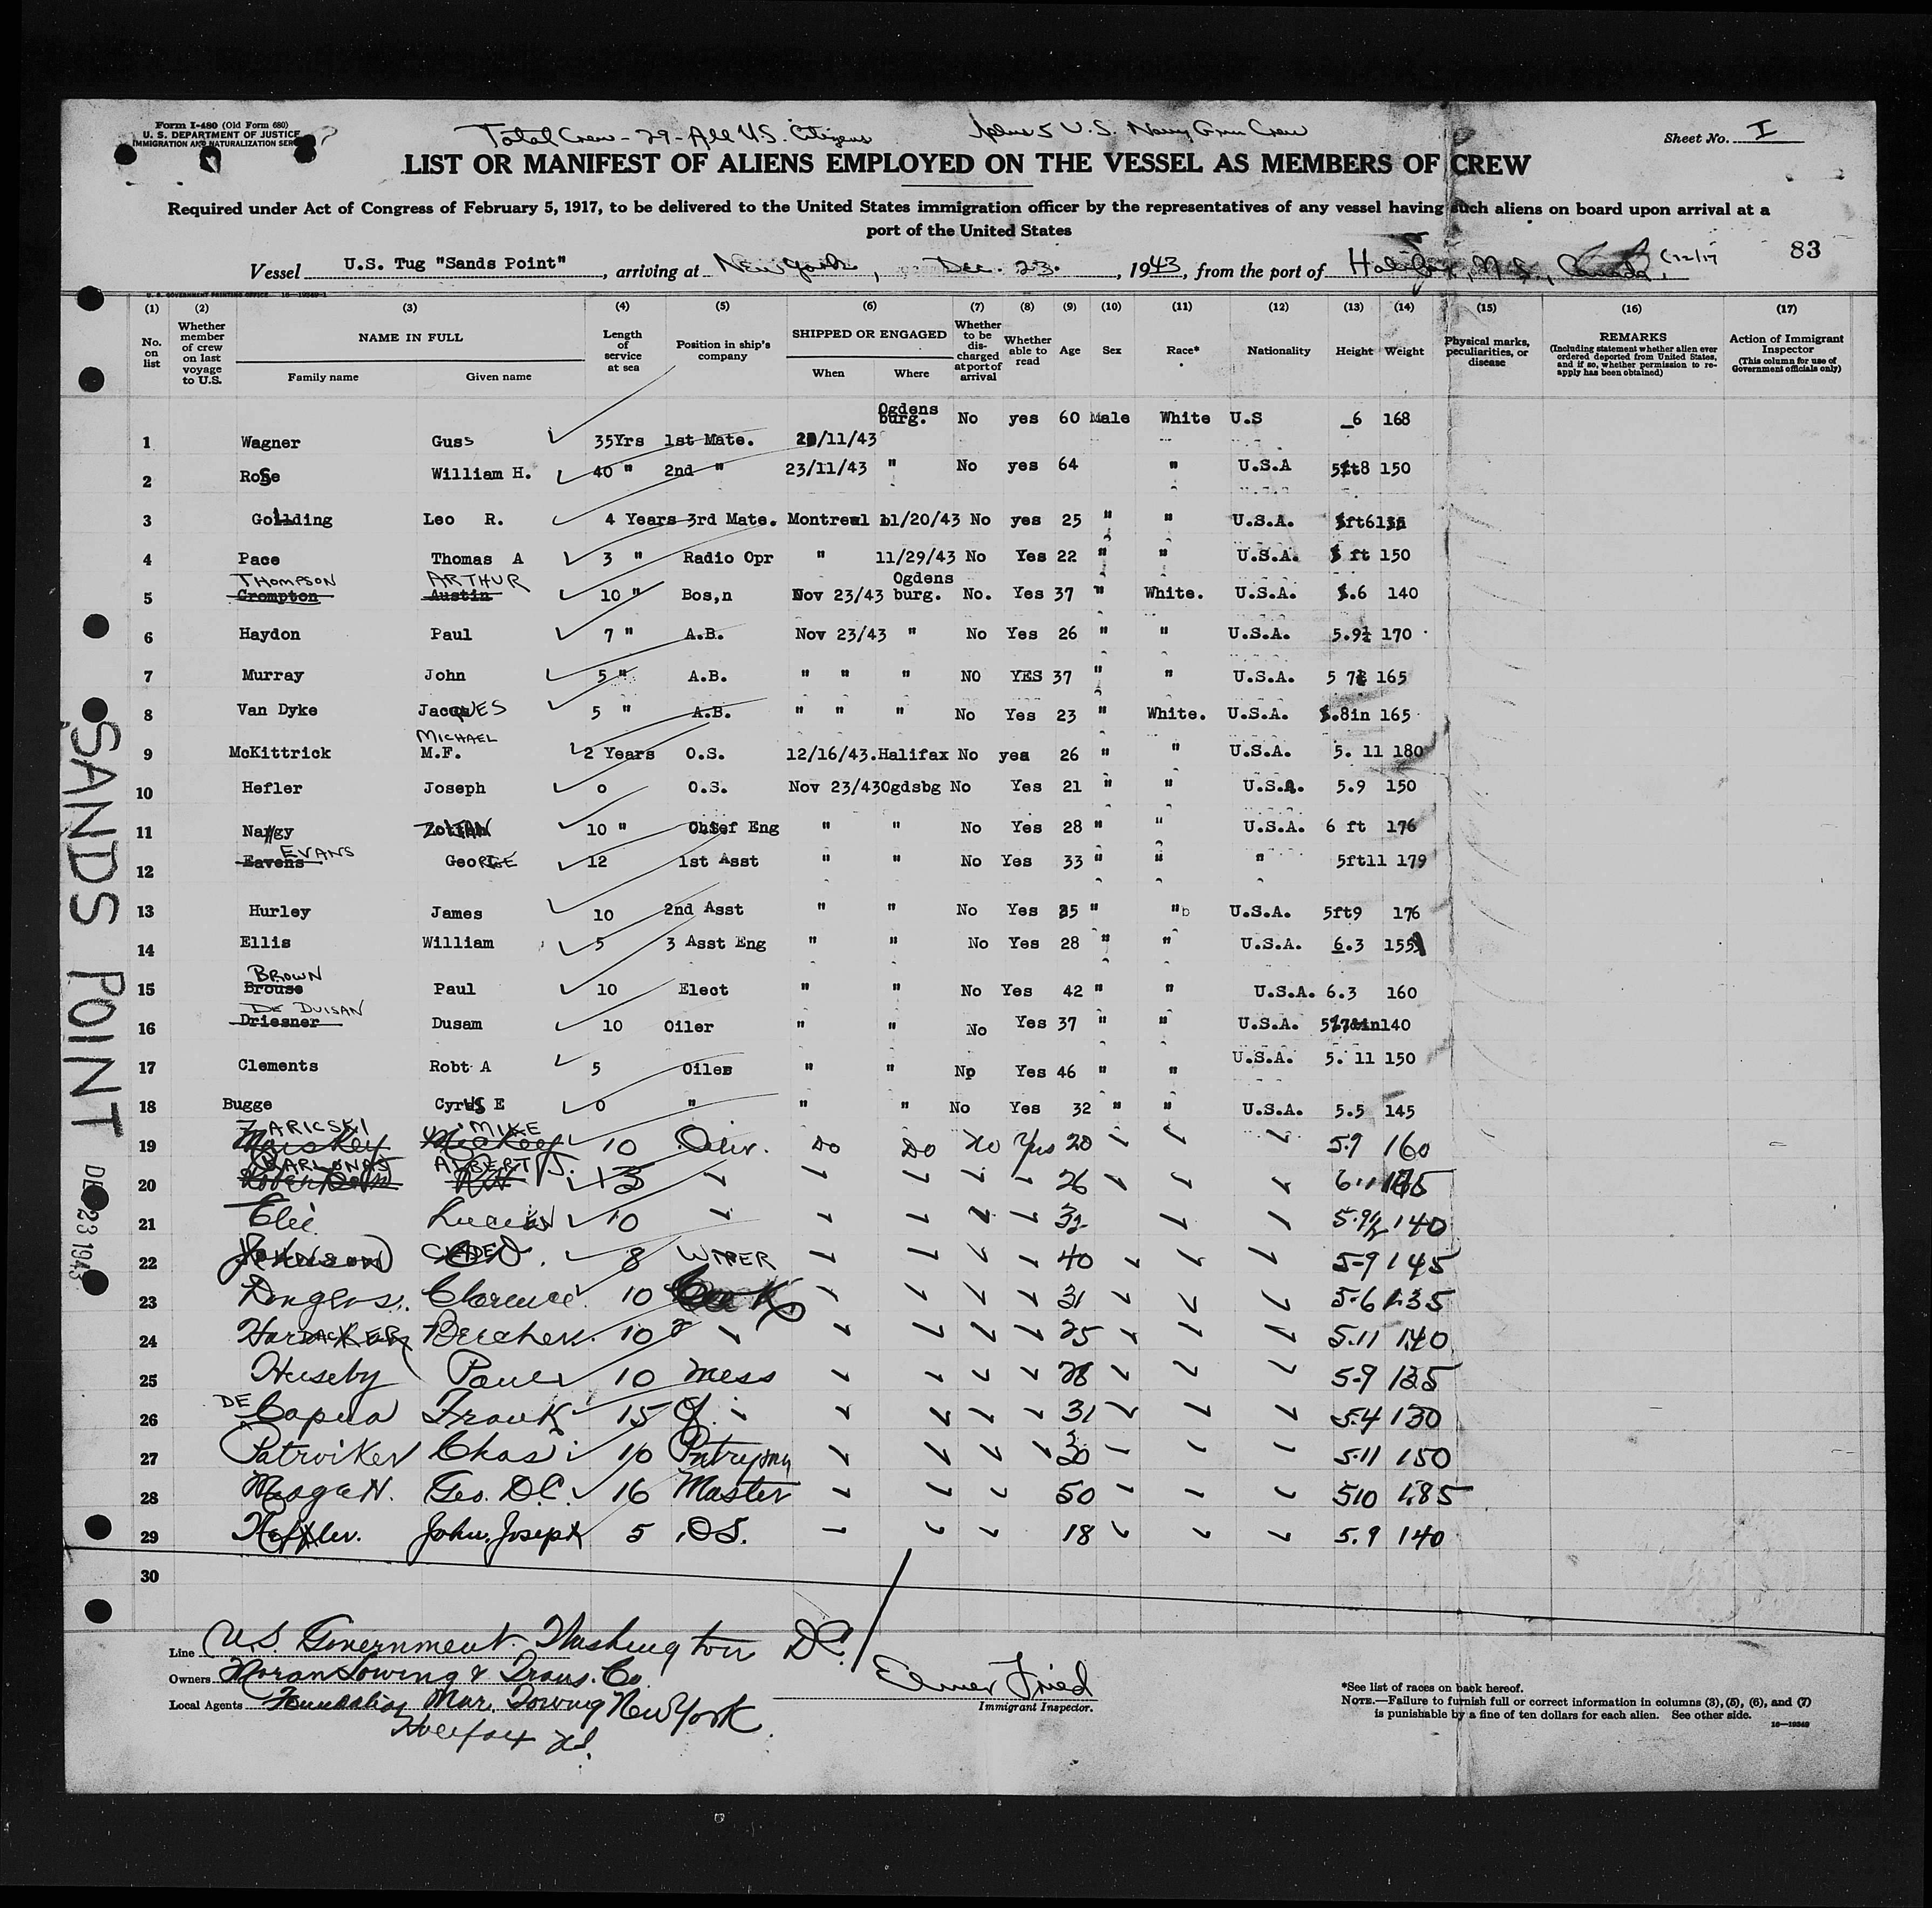 Form I-480 (Old Form 680)
U. S. DEPARTMENT OF JUSTICE
IMMIGRATION AND NATURALIZATION SER
Total Crew - 29 - All U.S. Citizens plus 5 U.S. Navy Gun Crew
Sheet No. I
LIST OR MANIFEST OF ALIENS EMPLOYED ON THE VESSEL AS MEMBERS OF CREW
Required under Act of Congress of February 5, 1917, to be delivered to the United States immigration officer by the representatives of any vessel having such aliens on board upon arrival at a
port of the United States
83
Vessel U.S. Tug "Sands Point", arriving at New York, Dec. 23, 1943, from the port of Halifax, N.S., Canada, (12/17
U. S. GOVERNMENT PRINTING OFFICE 16-19349-1
(1) (2) (3) (4) (5) (6) (7) (8) (9) (10) (11) (12) (13) (14) (15) (16) (17)
No. on list
Whether member of crew on last voyage to U.S.
NAME IN FULL
Family name Given name
Length of service at sea
Position in ship's company
SHIPPED OR ENGAGED
When Where
Whether to be discharged at port of arrival
Whether able to read
Age
Sex
Race*
Nationality
Height
Weight
Physical marks, peculiarities, or disease
REMARKS
(Including statement whether alien ever ordered deported from United States, and if so, whether permission to reapply has been obtained)
Action of Immigrant Inspector
(This column for use of Government officials only)
1 Wagner Guss 35Yrs 1st Mate. /11/43 Ogdens burg. No yes 60 Male White U.S 6 168
2 Rose William H. 40 " 2nd " 23/11/43 " No yes 64 " U.S.A 5ft8 150
3 Goulding Leo R. 4 Years 3rd Mate. Montreal 11/20/43 No yes 25 " " U.S.A. 5ft6
4 Pace Thomas A 3 " Radio Opr " 11/29/43 No Yes 22 " " U.S.A. ft 150
THOMPSON ARTHUR
5 Crompton Austin 10 " Bos,n Nov 23/43 Ogdens burg. No. Yes 37 " White. U.S.A. 5.6 140
6 Haydon Paul 7 " A.B. Nov 23/43 " No Yes 26 " " U.S.A. 5.9½ 170
7 Murray John 5 " A.B. " " " NO YES 37 " " U.S.A. 5 7 165
8 Van Dyke JacQUES 5 " A.B. " " " No Yes 23 " White. U.S.A. 5.8in 165
MICHAEL
9 McKittrick M.F. 2 Years O.S. 12/16/43. Halifax No yes 26 " " U.S.A. 5. 11 180
10 Hefler Joseph o O.S. Nov 23/43 Ogdsbg No Yes 21 " " U.S.A. 5.9 150
11 Nagy ZOLTAN 10 " Chief Eng " " No Yes 28 " " U.S.A. 6 ft 176
EVANS
12 Eavens GeoRGE 12 1st Asst " " No Yes 33 " " " 5ft11 179
13 Hurley James 10 2nd Asst " " No Yes 35 " "b U.S.A. 5ft9 176
14 Ellis William 5 3 Asst Eng " " No Yes 28 " " U.S.A. 6.3 155
BROWN
15 Brouse Paul 10 Elect " " No Yes 42 " " U.S.A. 6.3 160
DE DUISAN
16 Driesner Dusam 10 Oiler " " No Yes 37 " " U.S.A. 140
17 Clements Robt A 5 Oiler " " No Yes 46 " " U.S.A. 5. 11 150
18 Bugge CyrUS E 0 " " " No Yes 32 " " U.S.A. 5.5 145
ZARICSKI MIKE
19 Mickey 10 Oiler. Do Do No Yes 20 5.9 160
BARLONAS ALBERT J.
20 Robertson 26
21 Elie Lucien 10 32 5.9½ 140
22 Johnson 8 WIPER 40 5-9 145
23 Douglas. Clarence 10 Cook 31 5-6 135
24 HarDACKER 10 2 25 5.11 140
25 Huseby Paul 10 Mess 28 5-9 135
26 DE Capua Frank 15 31 5.4 130
27 Patroiker Chas 10 Pntryman 30 5.11 150
28 Geo. D.C. 16 Master 50 510 185
29 Heffler. John, Joseph 5 O.S. 18 5.9 140
30
SANDS POINT
DEC 23 1943
Line U.S. Government. Washington D.C.
Owners Moran Towing & Trans. Co.
Local Agents Foundation Mar. Towing New York
Halifax N.S.
Elmer Fried
Immigrant Inspector.
*See list of races on back hereof.
NOTE.—Failure to furnish full or correct information in columns (3), (5), (6), and (7)
is punishable by a fine of ten dollars for each alien. See other side.
16—19349